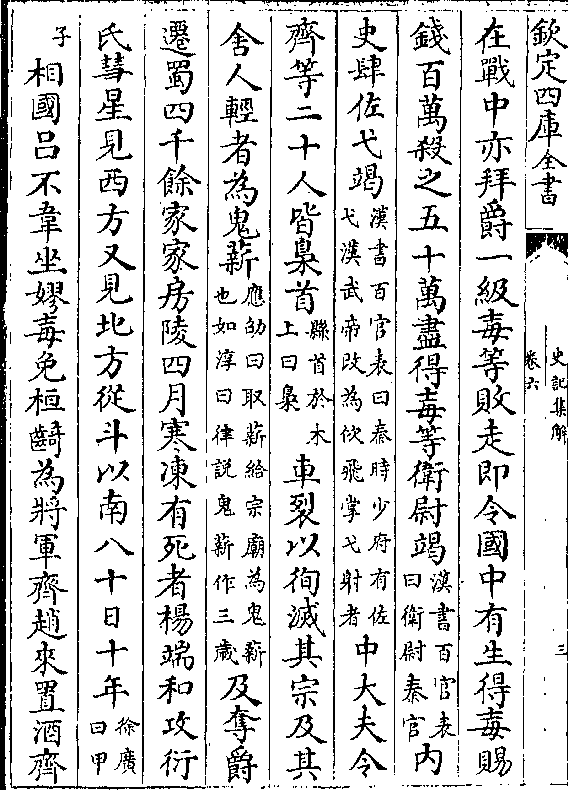 欽定四庫全書
史記集解
卷六
三
在戰中亦拜爵一級毐等敗走即令國中有生得毐賜
錢百萬殺之五十萬盡得毐等衛尉竭漢書百官表曰衛尉秦官內
史肆佐弋竭漢書百官表曰秦時少府有佐弋漢武帝改為佽飛掌弋射者中大夫令
齊等二十人皆梟首縣首於木上曰梟車裂以徇滅其宗及其
舍人輕者為鬼薪應劭曰取薪給宗廟為鬼薪也如淳曰律說鬼薪作三歲及奪爵
遷蜀四千餘家家房陵四月寒凍有死者楊端和攻衍
氏彗星見西方又見北方從斗以南八十日十年徐廣曰甲
子相國呂不韋坐嫪毐免桓齮為將軍齊趙來置酒齊